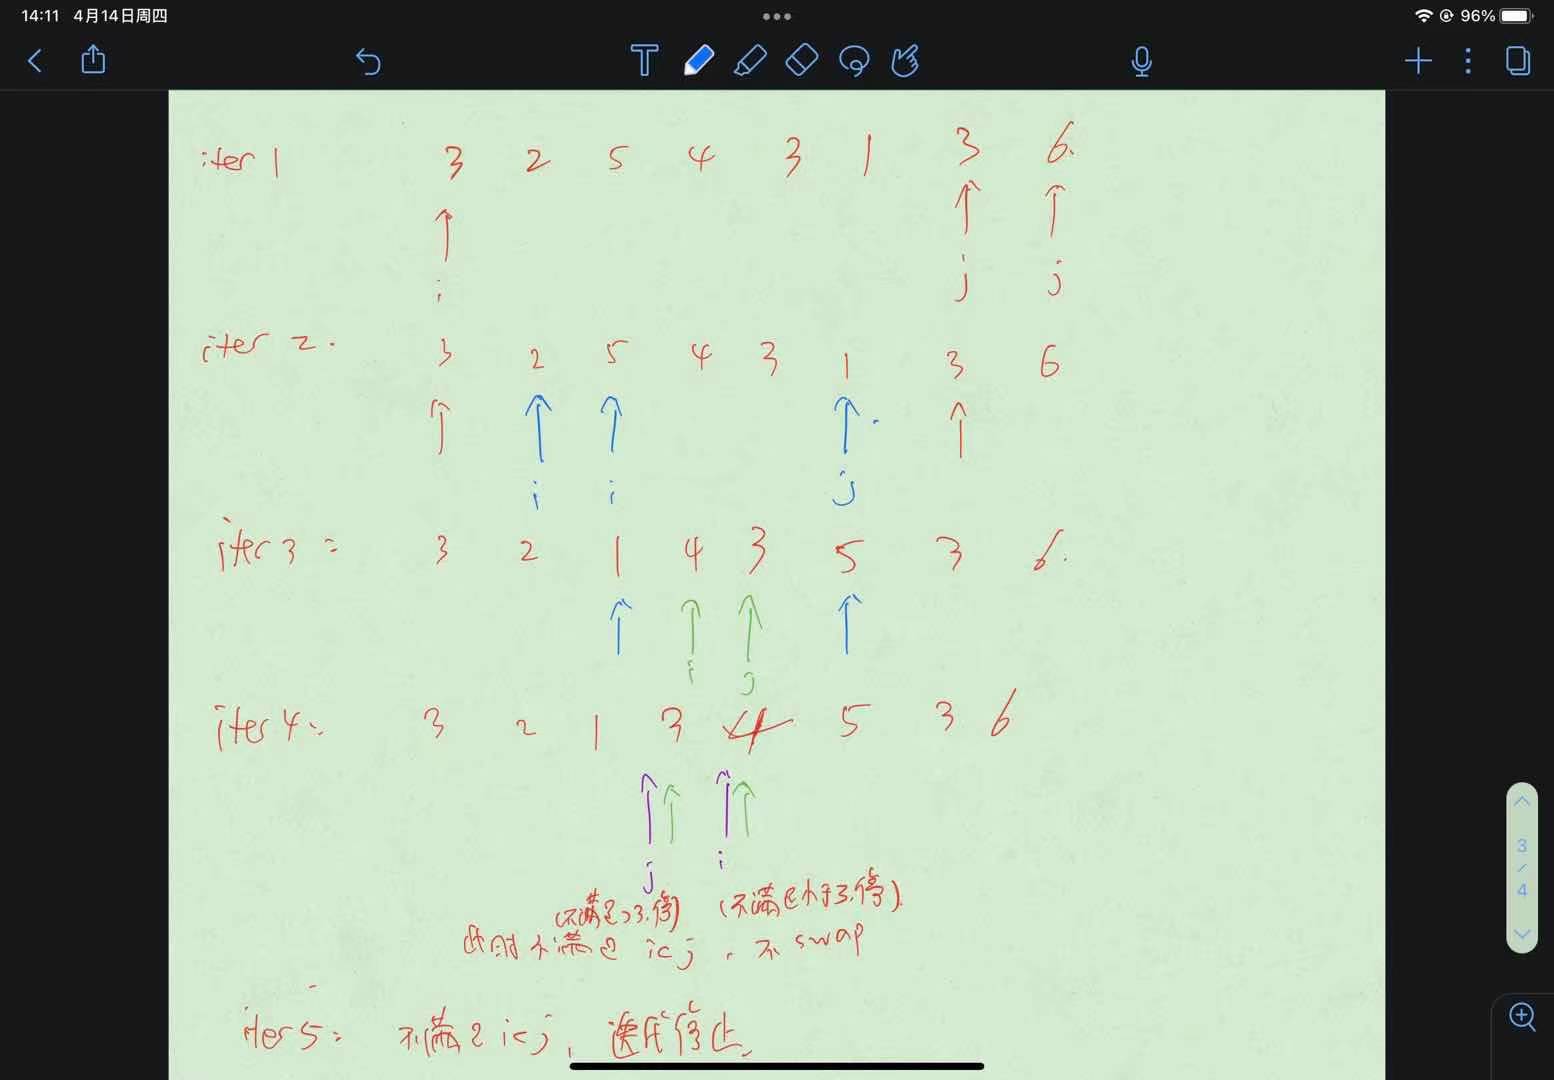 14:11 4月14日周四
96%
iter 1 3 2 5 4 3 1 3 6.
i j j
iter 2. 3 2 5 4 3 1 3 6
i i j
iter 3 = 3 2 1 4 3 5 3 6.
i j
iter 4: 3 2 1 3 4 5 3 6
j i
(不满足>3,停) (不满足小于3,停).
此时不满足 i<j , 不 swap
iter 5: 不满足 i<j, 迭代停止.
3
/
4